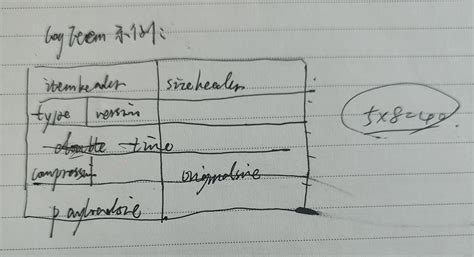 logItem示例:
itemheader sizeheader
type version
time
compressed originalsize
payloadsize
5×8=40